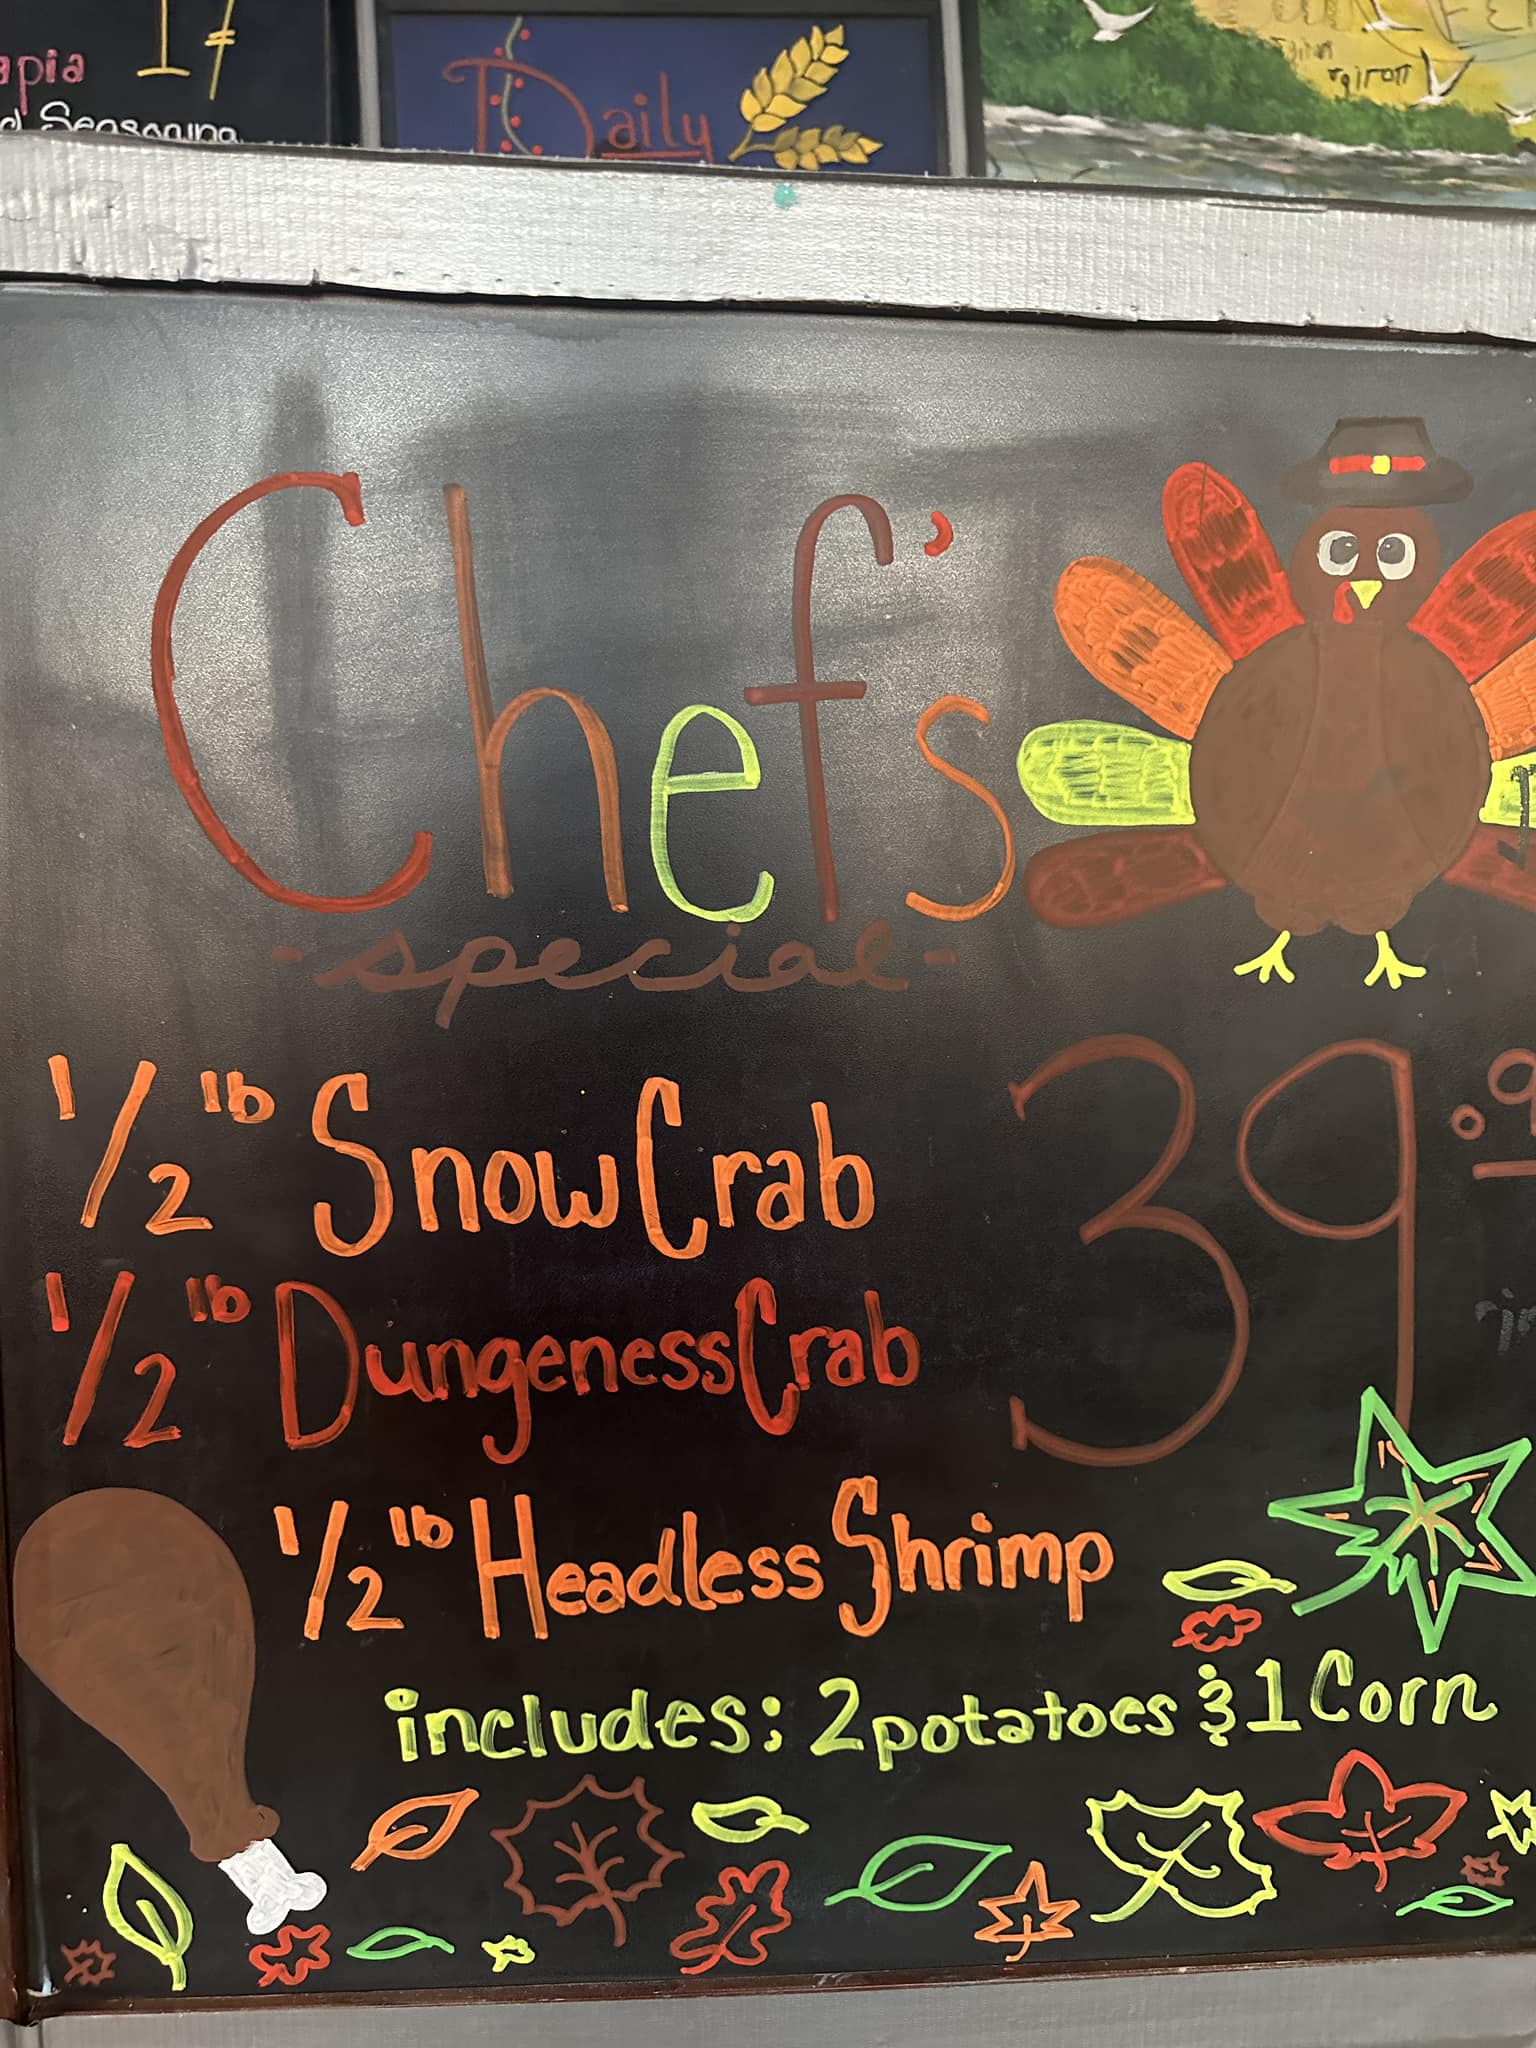 d Seasoning
Daily
Chef's
-special-
1/2 lb Snow Crab
39.9
1/2 lb Dungeness Crab
1/2 lb Headless Shrimp
includes: 2 potatoes & 1 Corn